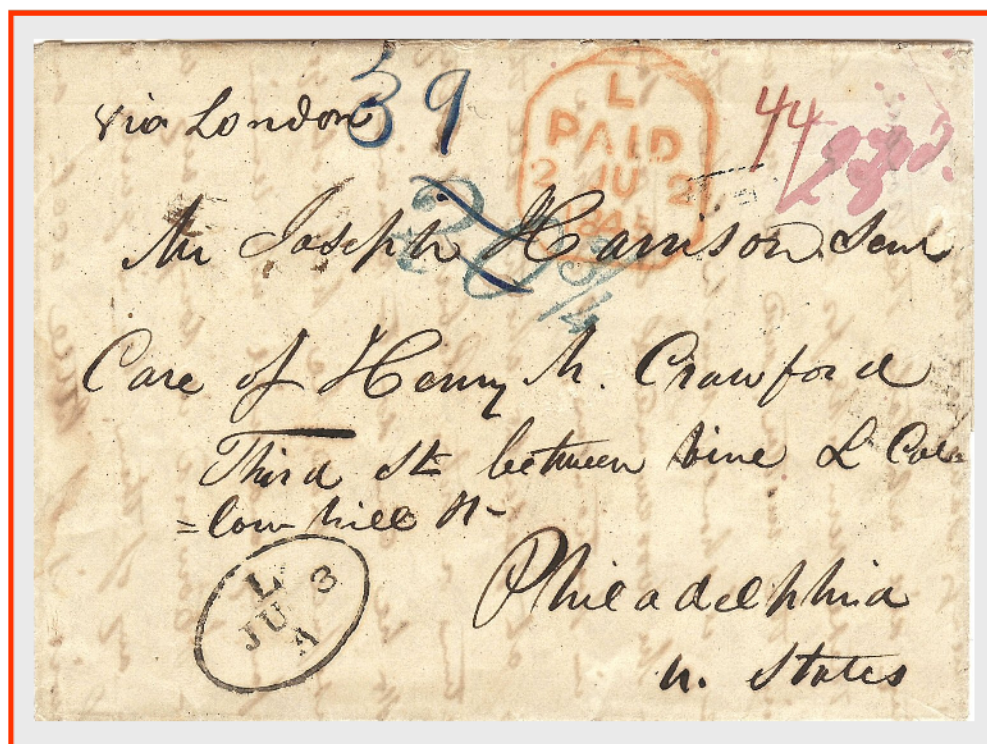 via London
39
L
PAID
2 JU 2
1845
44
Mr Joseph Harrison Senr
Care of Henry M. Crawford
Third St between Vine & Cal=
=low hill St-
L
JU 3
A
Philadelphia
U. States